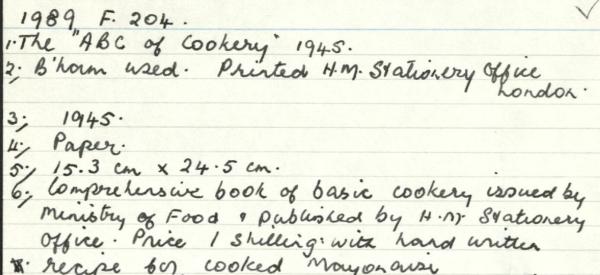 1989 F. 204.
1. The "ABC of Cookery" 1945.
2; B'ham used. Printed H.M. Stationery Office
London.
3; 1945.
4; Paper.
5; 15.3 cm x 24.5 cm.
6; Comprehensive book of basic cookery issued by
Ministry of Food & published by H.M. Stationery
Office. Price 1 Shilling: with hand written
recipe for cooked Mayonaise